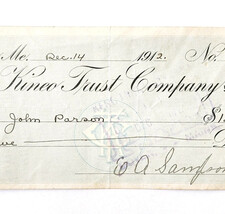 Me. Dec. 14 1912. No.
Kineo Trust Company
John Parson $1
ve
E A Sampson